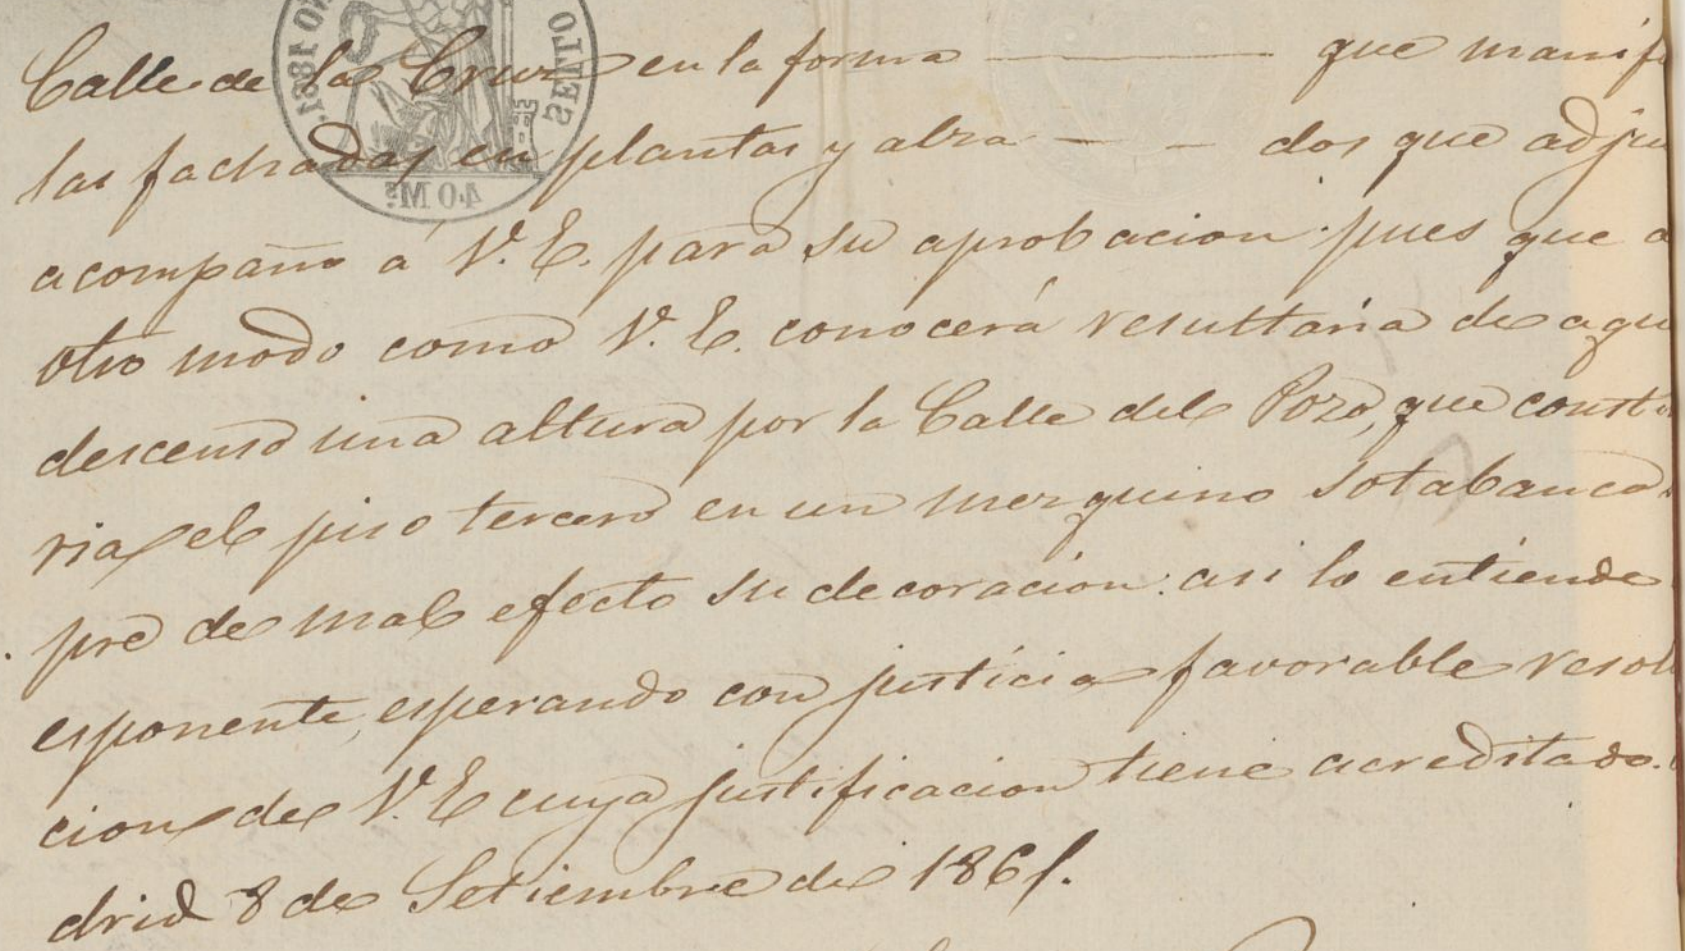 Calle de la Cruz en la forma — que manif
las fachadas en plantas y alza — - dos que adju
acompaño á V. E. para su aprobacion pues que
otro modo como V. E. conocerá resultaria de aqu
descenso una altura por la Calle del Pozo, que const
ria el piso tercero en un mezquino sotabanco
pre de mal efecto su decoracion: asi lo entiende
esponente, esperando con justicia favorable resol
cion de V. E cuya justificacion tiene acreditado.
drid 8 de Setiembre de 1861.
NO 1881.
SELLO
40 Ms